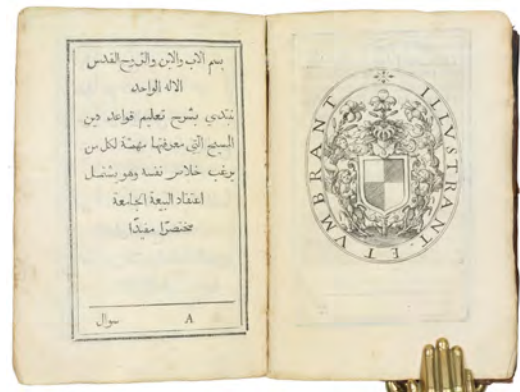 بسم الاب والابن والروح القدس
الاله الواحد
نبتدي بشرح تعليم قواعد دين
المسيح الّتي معرفتها مهمّة لكل من
يرغب خلاص نفسه وهو يشتمل
اعتقاد البيعة الجامعة
مختصرًا مفيدًا
A سوال
ILLVSTRANT ET VMBRANT